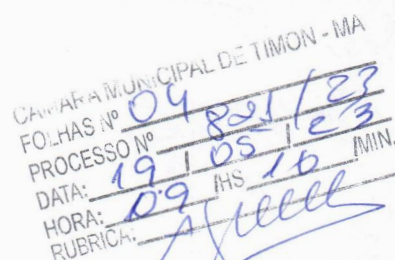 CAMARA MUNICIPAL DE TIMON - MA
FOLHAS Nº 04
PROCESSO Nº 821 / 23
DATA: 19 / 05 / 23
HORA: 09 /HS 16 /MIN.
RUBRICA: